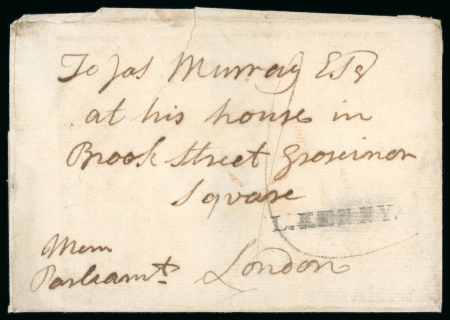 To Jas Murray Esq
at his house in
Brook Street Grosvinor
Square
L.KERRY.
Mem
Parliamt. London